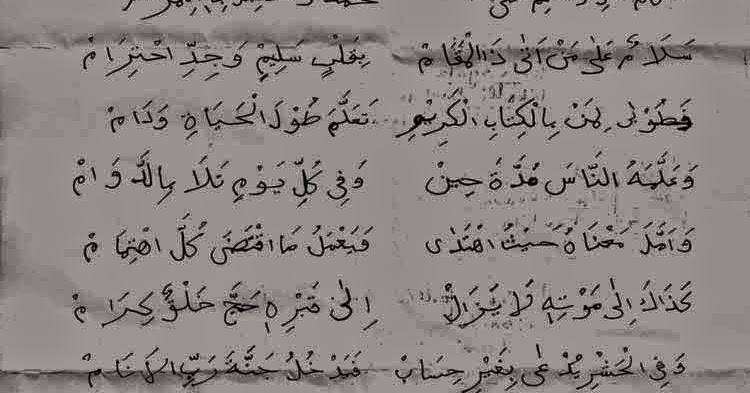 سَلَامٌ عَلَى مَنْ اَتَى ذَا الْمَقَامْ بِقَلْبٍ سَلِيْمٍ وَجِدِّ احْتِرَامْ
فَطُوْبَى لِمَنْ بِالْكِتَابِ الْكَرِيْمِ تَعَلَّمَ طُوْلَ الْحَيَاةِ وَدَامْ
وَعَلَّمَهُ النَّاسَ مُدَّةَ حِيْنْ وَفِي كُلِّ يَوْمٍ تَلَا بِالدَّوَامْ
وَاَمَّلَ مَعْنَاهُ حَيْثُ اهْتَدَى وَيَعْمَلُ مَا اقْتَضَى كُلَّ اهْتِمَامْ
كَذَاكَ اِلَى مَوْتِهِ لَا يَزَالْ اِلَى قَبْرِهِ حَجَّ خَلْقٌ كِرَامْ
وَفِي الْحَشْرِ يُدْعَى بِغَيْرِ حِسَابْ فَيَدْخُلُ جَنَّةَ رَبِّ الْاَنَامْ